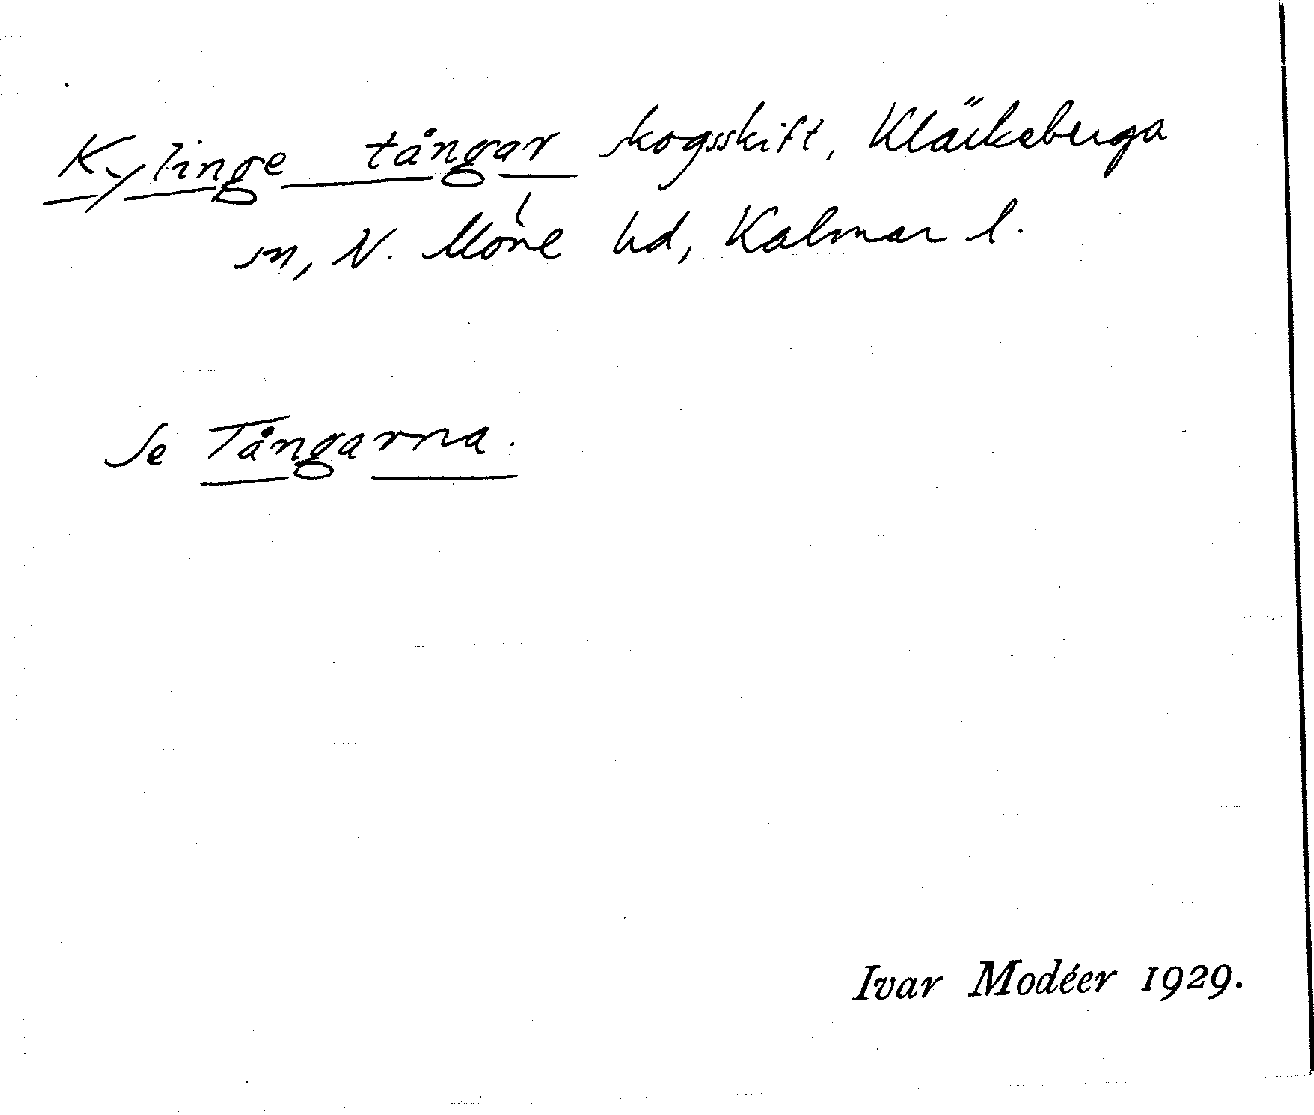 Kylinge tångar skogsskift, Kläckeberga
sn, N. Möre hd, Kalmar l.
Se Tångarna.
Ivar Modéer 1929.